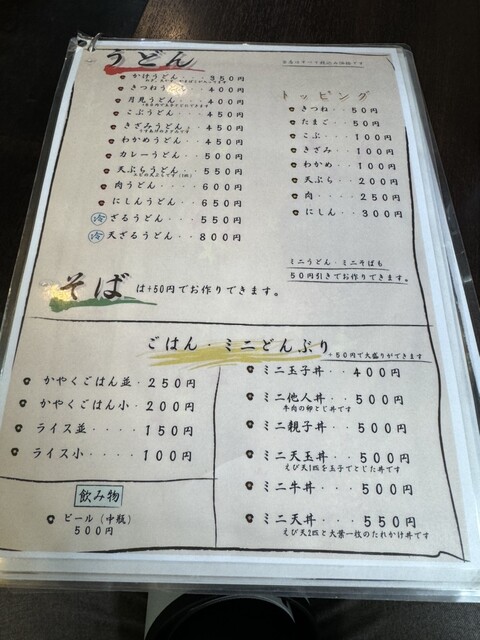 うどん
かけうどん・・350円
きつねうどん・・400円
月見うどん・・・400円
こぶうどん・・・450円
きざみうどん・・450円
わかめうどん・・450円
カレーうどん・・500円
天ぷらうどん・・550円
肉うどん・・・・600円
にしんうどん・・650円
冷 ざるうどん・・・550円
冷 天ざるうどん・・800円
トッピング
きつね・・50円
たまご・・50円
こぶ・・・100円
きざみ・・100円
わかめ・・100円
天ぷら・・200円
肉・・・・250円
にしん・・300円
ミニうどん・ミニそばも
50円引きでお作りできます。
そば は+50円でお作りできます。
ごはん・ミニどんぶり
+50円で大盛りができます
かやくごはん並・250円
かやくごはん小・200円
ライス並・・・・150円
ライス小・・・・100円
飲み物
ビール（中瓶）
500円
ミニ玉子丼・・400円
ミニ他人丼・・500円
牛肉の卵とじ丼です
ミニ親子丼・・500円
ミニ天玉丼・・500円
えび天1匹を玉子でとじた丼です
ミニ牛丼・・・500円
ミニ天丼・・・550円
えび天2匹と大葉一枚のたれかけ丼です